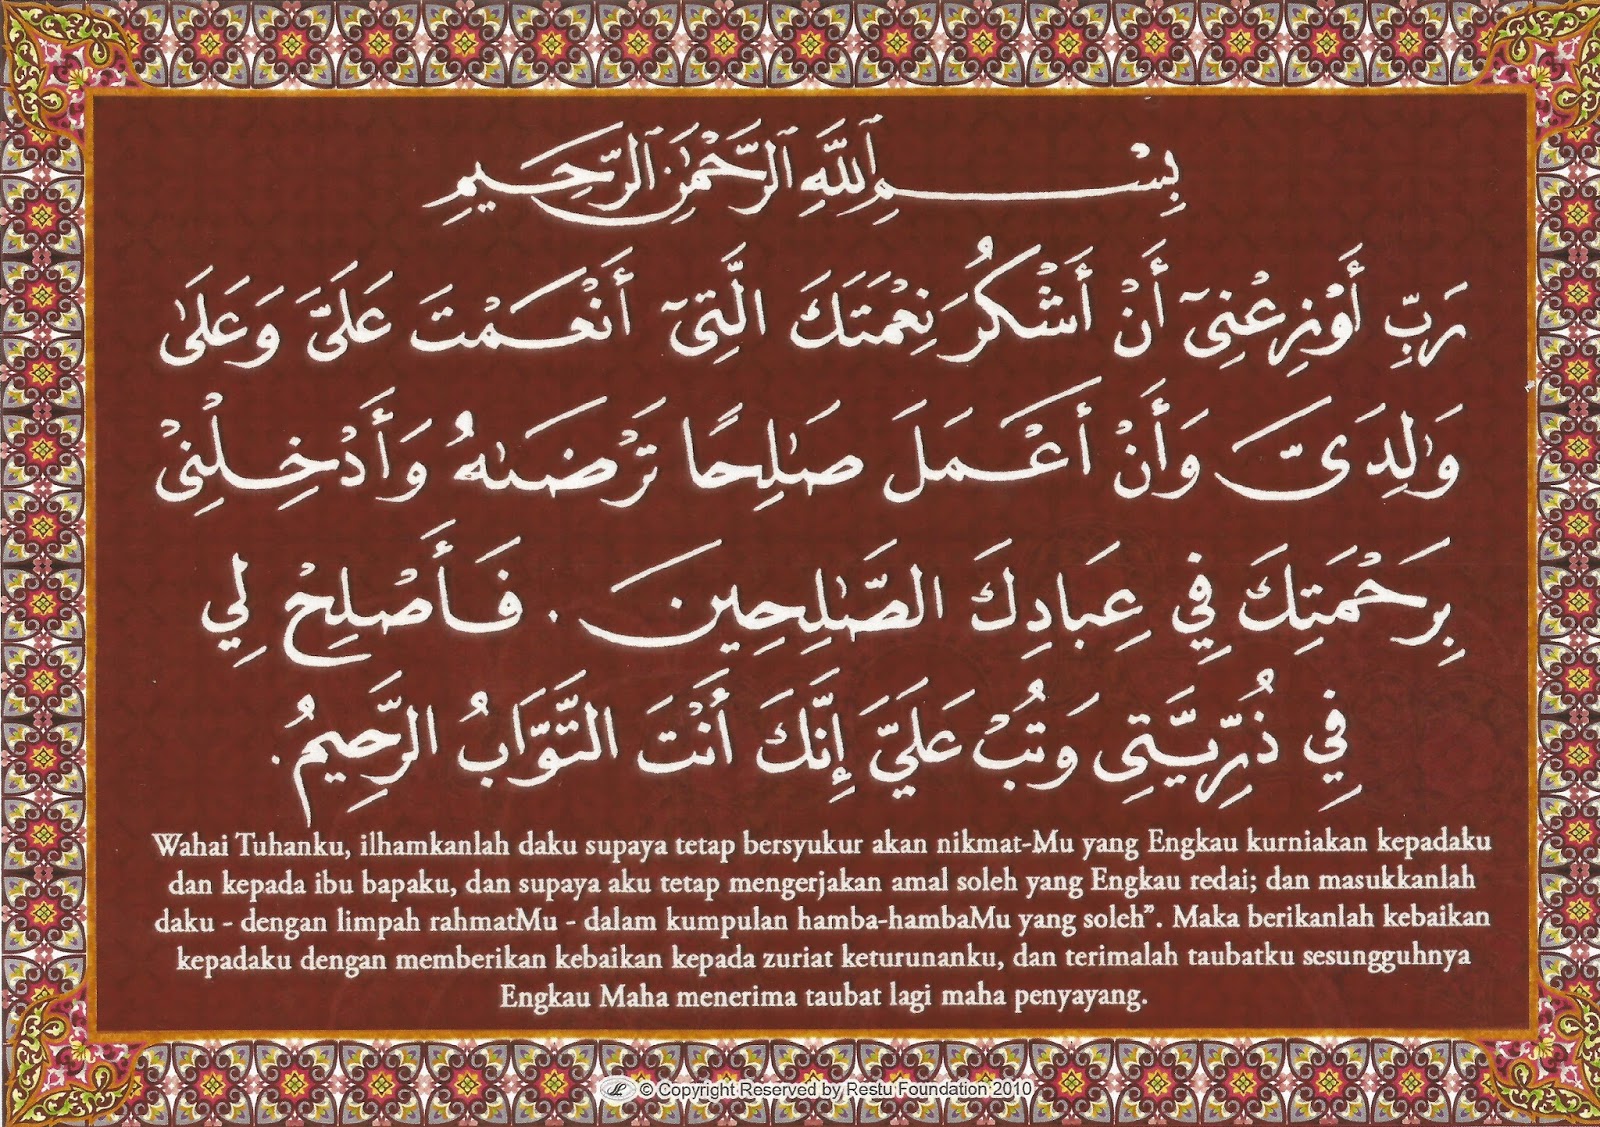 بِسْمِ ٱللَّهِ ٱلرَّحْمَٰنِ ٱلرَّحِيمِ
رَبِّ أَوْزِعْنِىٓ أَنْ أَشْكُرَ نِعْمَتَكَ الَّتِىٓ أَنْعَمْتَ عَلَىَّ وَعَلَىٰ
وَٰلِدَىَّ وَأَنْ أَعْمَلَ صَٰلِحًا تَرْضَىٰهُ وَأَدْخِلْنِىْ
بِرَحْمَتِكَ فِي عِبَادِكَ الصَّٰلِحِينَ . فَأَصْلِحْ لِي
فِي ذُرِّيَّتِى وَتُبْ عَلَيَّ إِنَّكَ أَنْتَ التَّوَّابُ الرَّحِيمُ.
Wahai Tuhanku, ilhamkanlah daku supaya tetap bersyukur akan nikmat-Mu yang Engkau kurniakan kepadaku
dan kepada ibu bapaku, dan supaya aku tetap mengerjakan amal soleh yang Engkau redai; dan masukkanlah
daku - dengan limpah rahmatMu - dalam kumpulan hamba-hambaMu yang soleh”. Maka berikanlah kebaikan
kepadaku dengan memberikan kebaikan kepada zuriat keturunanku, dan terimalah taubatku sesungguhnya
Engkau Maha menerima taubat lagi maha penyayang.
© Copyright Reserved by Restu Foundation 2010